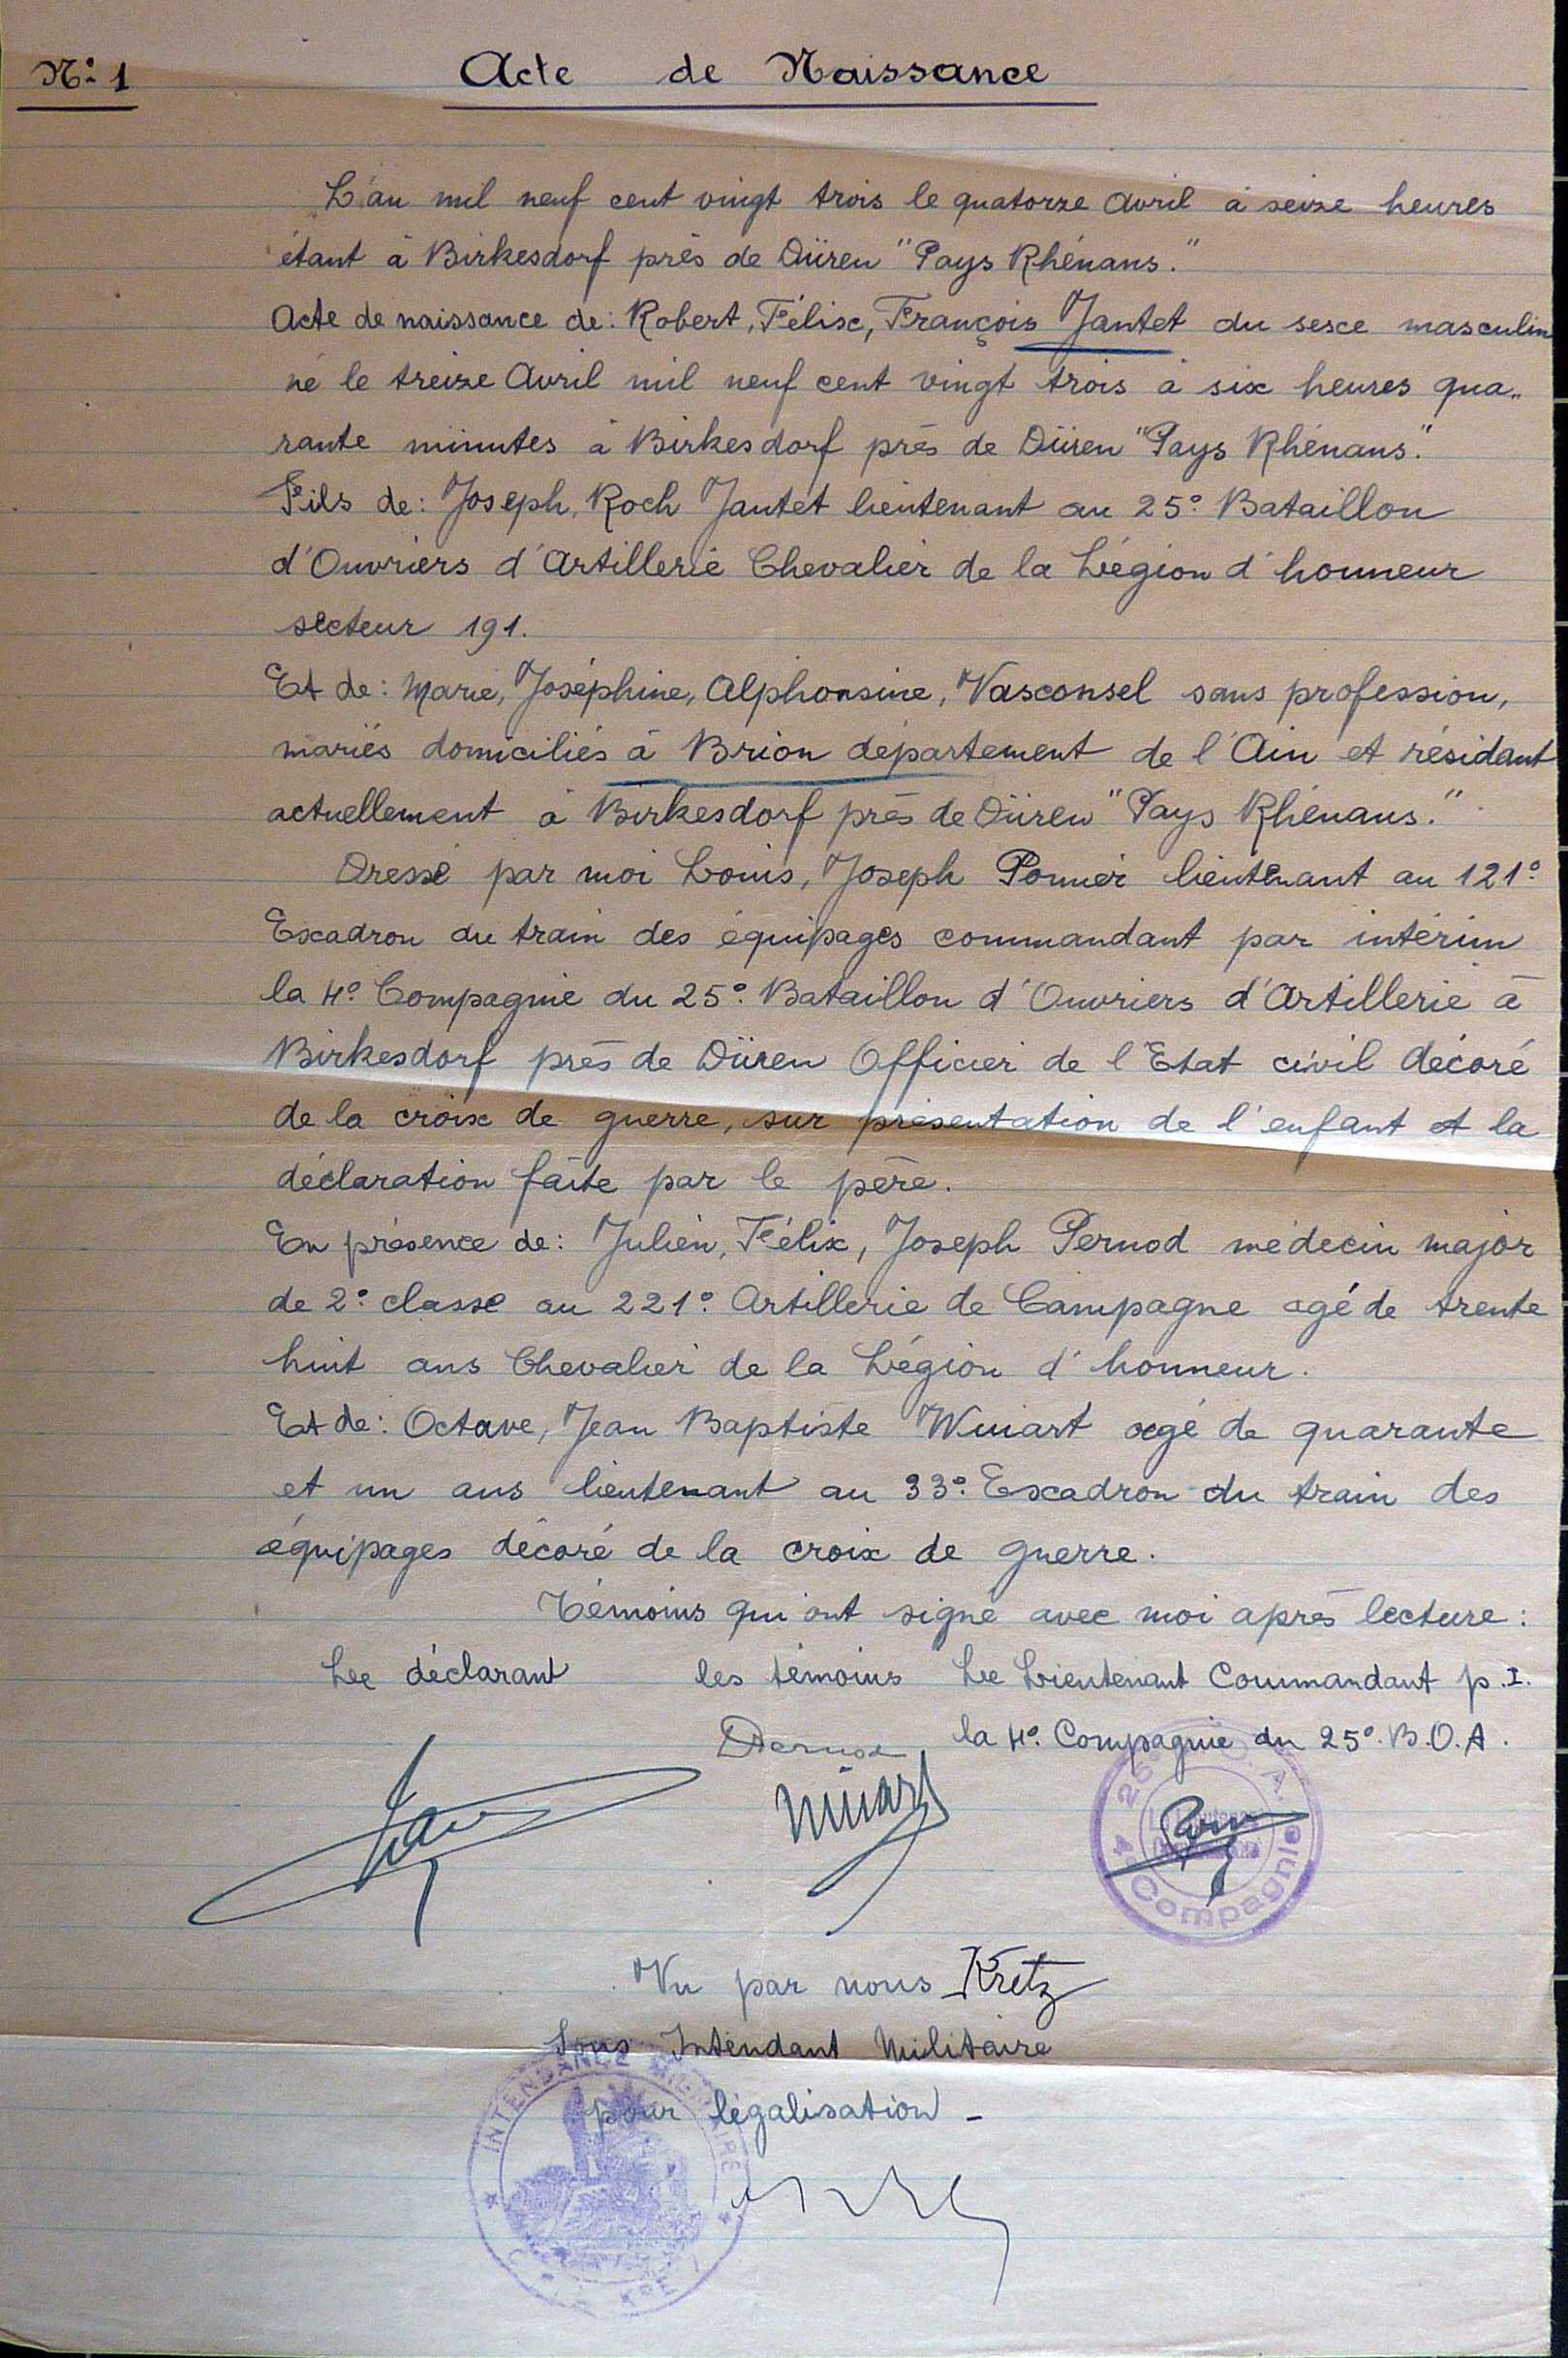 N° 1
Acte de Naissance
L'an mil neuf cent vingt trois le quatorze Avril à seize heures
étant à Birkesdorf près de Düren "Pays Rhénans."
Acte de naissance de: Robert, Félix, François Jantet du sexe masculin
né le treize Avril mil neuf cent vingt trois à six heures qua-
rante minutes à Birkesdorf près de Düren "Pays Rhénans."
Fils de: Joseph, Roch Jantet lieutenant au 25° Bataillon
d'Ouvriers d'Artillerie Chevalier de la Légion d'honneur
secteur 191.
Et de: Marie, Joséphine, Alphonsine, Vasconsel sans profession,
mariés domiciliés à Brion département de l'Ain et résidant
actuellement à Birkesdorf près de Düren "Pays Rhénans."
Dressé par moi Louis, Joseph Ponnier lieutenant au 121°
Escadron du train des équipages commandant par intérim
la 4° Compagnie du 25° Bataillon d'Ouvriers d'Artillerie à
Birkesdorf près de Düren Officier de l'Etat civil décoré
de la croix de guerre, sur présentation de l'enfant et la
déclaration faite par le père.
En présence de: Julien, Félix, Joseph Pernod médecin major
de 2° classe au 221° Artillerie de Campagne agé de trente
huit ans Chevalier de la Légion d'honneur.
Et de: Octave, Jean Baptiste Winart agé de quarante
et un ans lieutenant au 33° Escadron du train des
équipages décoré de la croix de guerre.
Témoins qui ont signé avec moi après lecture:
Le déclarant les témoins Le Lieutenant Commandant p.I.
la 4° Compagnie du 25° B.O.A.
Pernod
Winart
4° Compagnie
Vu par nous Kretz
Sous Intendant Militaire
pour légalisation -
INTENDANCE MILITAIRE